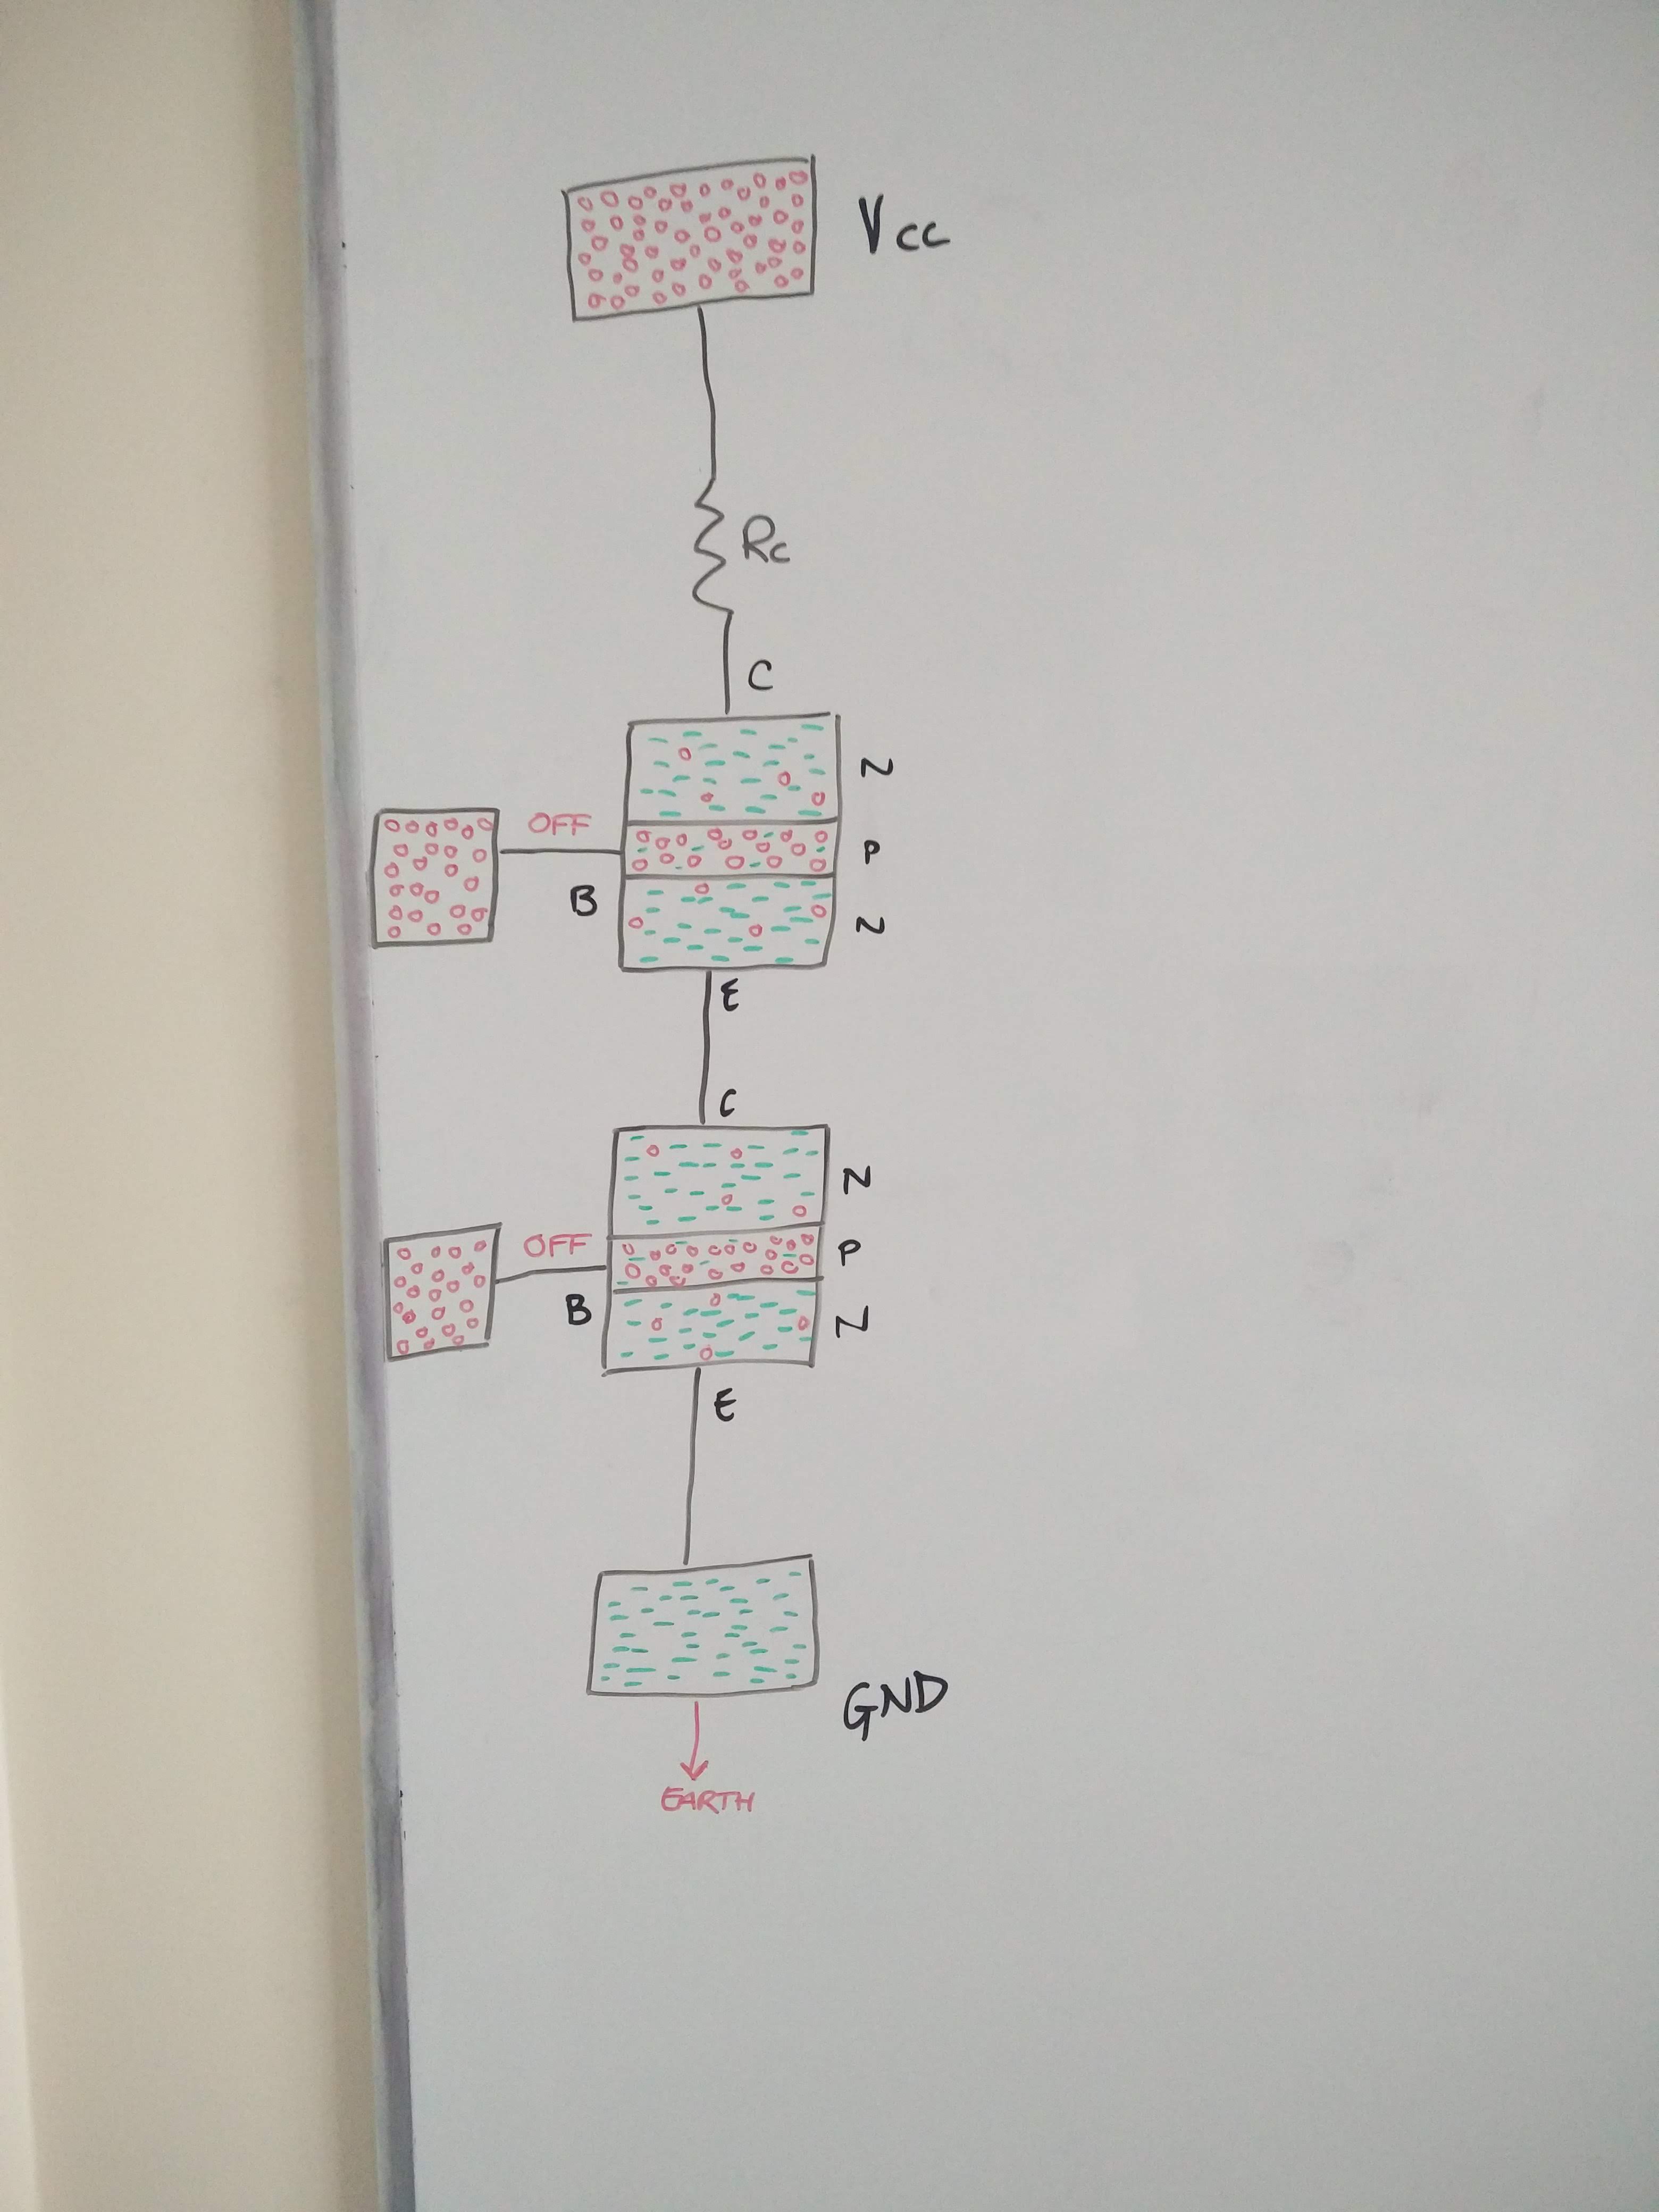 Vcc
Rc
C
N
OFF
P
B
N
E
C
N
OFF
P
B
N
E
GND
EARTH